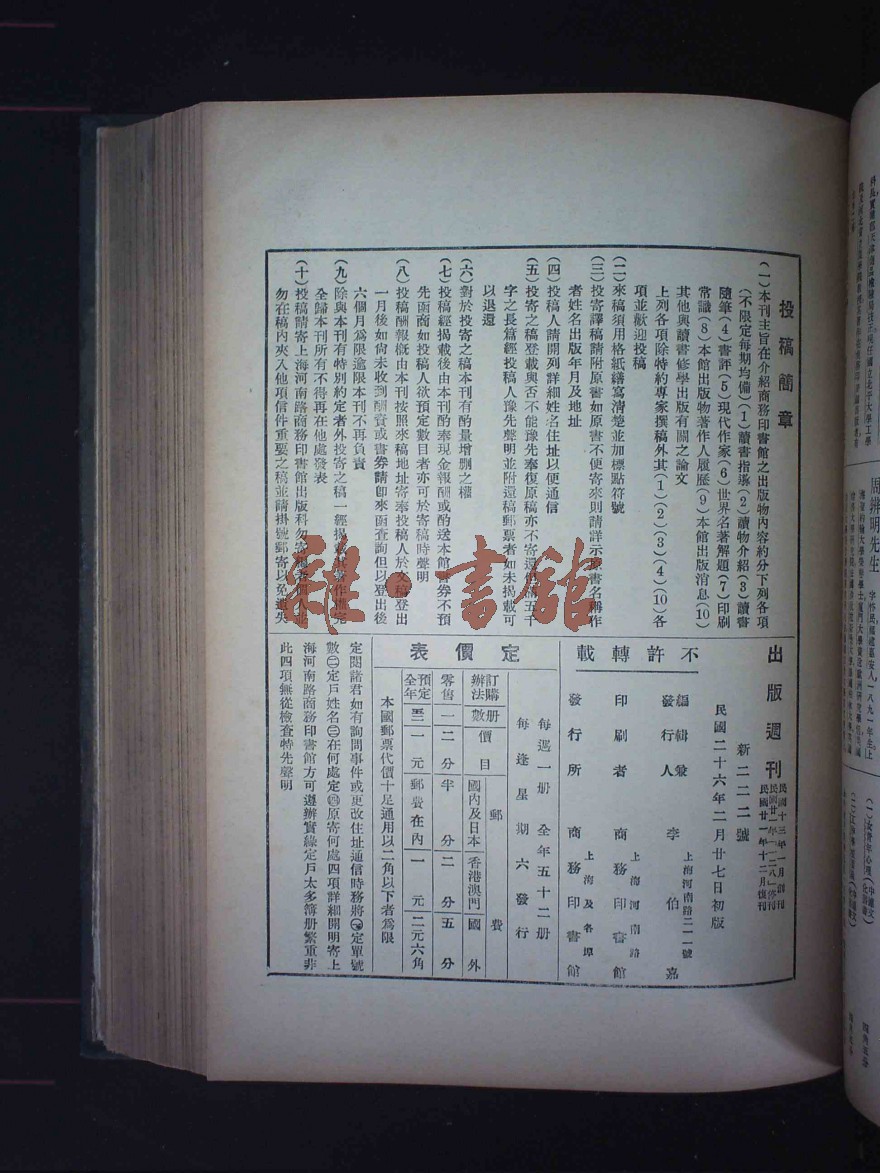 投稿簡章
(一)本刊主旨在介紹商務印書館之出版物內容約分下列各項
(不限定每期均備)(1)讀書指導(2)讀物介紹(3)讀書
隨筆(4)書評(5)現代作家(6)世界名著解題(7)印刷
常識(8)本館出版物著作人履歷(9)本館出版消息(10)
其他與讀書修學出版有關之論文
上列各項除特約專家撰稿外其(1)(2)(3)(4)(10)各
項並歡迎投稿
(二)來稿須用格紙繕寫清楚並加標點符號
(三)投寄譯稿請附原書如原書不便寄來則請詳示原書名稱作
者姓名出版年月及地址
(四)投稿人請開列詳細姓名住址以便通信
(五)投寄之稿登載與否不能豫先奉復原稿亦不寄還惟滿五千
字之長篇經投稿人豫先聲明並附還稿郵票者如未揭載可
以退還
(六)對於投寄之稿本刊有酌量增刪之權
(七)投稿經揭載後由本刊酌奉現金報酬或酌送本館書券不預
先函商如投稿人欲預定數目者亦可於寄稿時聲明
(八)投稿酬報概由本刊按照來稿地址寄奉投稿人於文稿登出
一月後如尙未收到酬資或書券請卽來函查詢但以登出後
六個月爲限逾限本刊不再負責
(九)除與本刊有特別約定者外投寄之稿一經揭載其著作權完
全歸本刊所有不得再在他處發表
(十)投稿請寄上海河南路商務印書館出版科勿寄編者個人並
勿在稿內夾入他項信件重要之稿並請掛號郵寄以免遺失
出版週刊
民國十三年一月創刊
民國廿一年一二八停刊
民國廿一年十二月復刊
新二二二號
民國二十六年二月廿七日初版
不許轉載
編輯兼發行人 李伯嘉
上海河南路二一一號
印刷者 商務印書館
上海河南路
發行所 商務印書館
上海及各埠
定價表
每週一册 全年五十二册
每逢星期六發行
訂購辦法 册數 價目 郵費
國內及日本 香港澳門 國外
零售 一 二分 半分 二分 五分
預定全年 五二 一元 郵費在內 一元 二元六角
本國郵票代價十足通用以二角以下者爲限
定閱諸君如有詢問事件或更改住址通信時務將㊀定單號
數㊁定戶姓名㊂在何處定㊃原寄何處四項詳細開明寄上
海河南路商務印書館方可遵辦實緣定戶太多簿册繁重非
此四項無從檢查特先聲明
周辨明先生
雜·書館